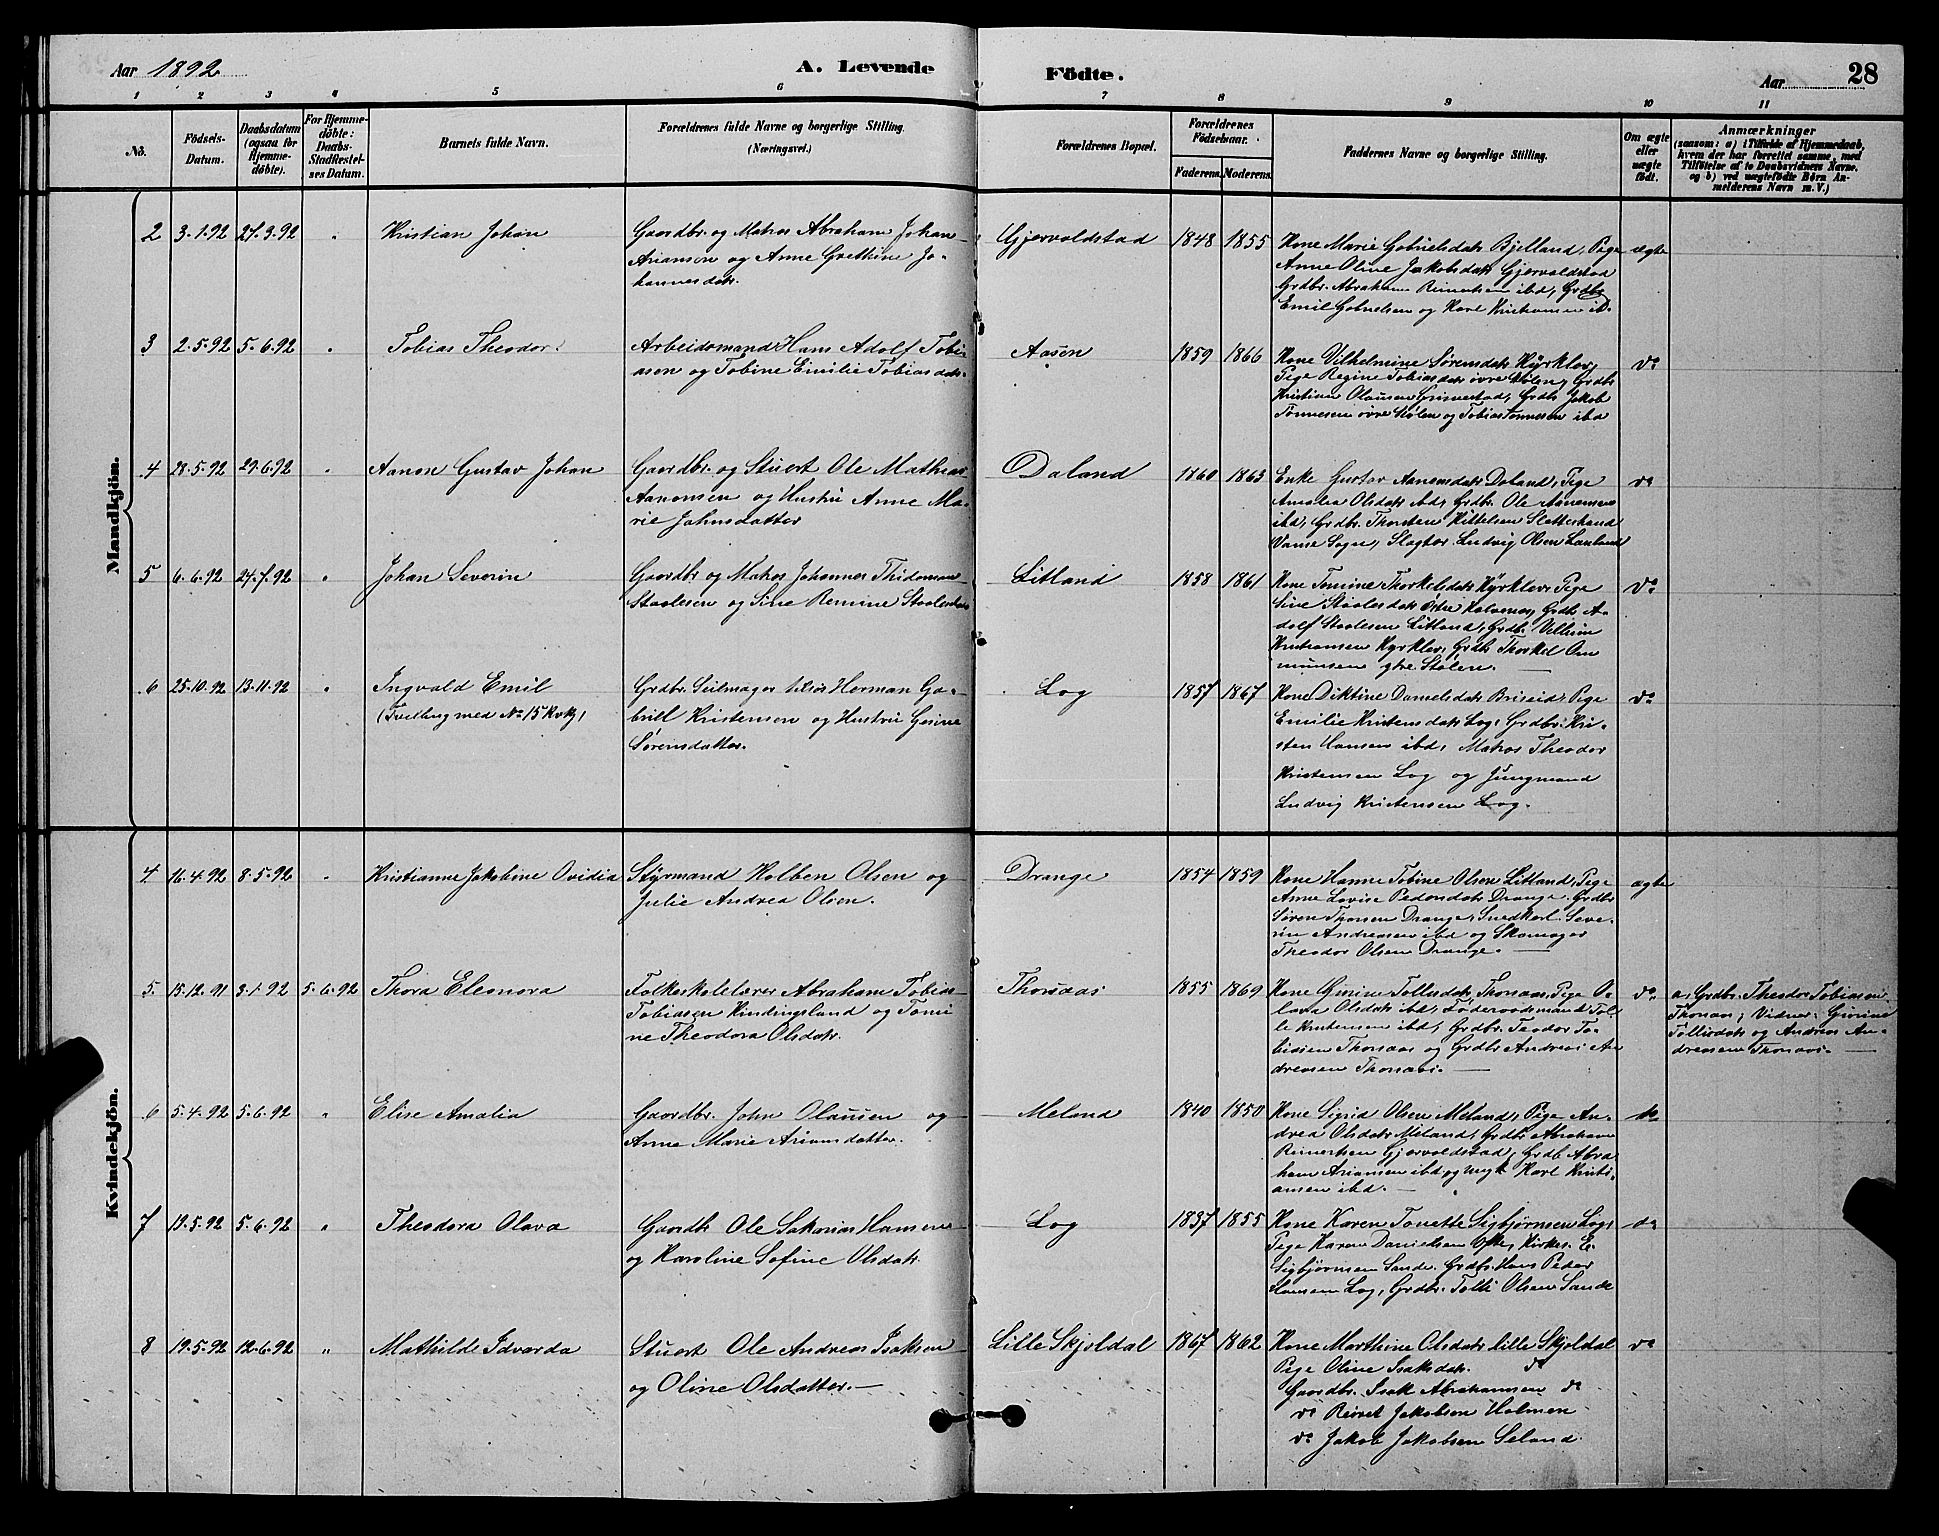 Aar 1892
A. Levende Födte.
Aar
28
1 2 3 4 5 6 7 8 9 10 11
No.
Födsels-
Datum.
Daabsdatum
(ogsaa for
Hjemme-
döbte).
For Hjemme-
döbte:
Daabs-
Stadfæstel-
ses Datum.
Barnets fulde Navn.
Forældrenes fulde Navne og borgerlige Stilling.
(Næringsvei.)
Forældrenes Bopæl.
Forældrenes
Födselsaar.
Faderens. Moderens.
Faddernes Navne og borgerlige Stilling.
Om ægte
eller
uægte
födt.
Anmærkninger
(saasom: a) i Tilfælde af Hjemmedaab,
hvem der har forrettet samme, med
Tilföielse af to Daabsvidners Navne,
og b) ved uægtefödte Börn An-
melderens Navn m.V.)
Mandkjön.
2 3.1.92 27.3.92 " Kristian Johan
Gaardbr. og Matros Abraham Johan
Ariansen og Anne Grethine Jo-
hannesdatr.
Gjervoldstad 1848 1855
Kone Marie Gabrielsdatr Bjelland, Pige
Anne Oline Jakobsdatr Gjervoldstad
Grdbr. Abraham Reinertsen ibd, Grdbr
Emil Gabrielsen og Karl Kristiansen ib.
ægte
3 2.5.92 5.6.92 " Tobias Theodor.
Arbeidsmand Hans Adolf Tobi-
asen og Tobine Emilie Tobiasdatr.
Aasen 1859 1866
Kone Vilhelmine Sørensdatr Kyrklev,
Pige Regine Tobiasdatr øvre Stølen, Grdbr
Kristian Olausen Grimestad, Grdbr Jakob
Tønnesen øvre Stølen og Tobias Tønnesen ibd
do
4 28.5.92 29.6.92 " Aanon Gustav Johan
Gaardbr. og Stuert Ole Mathias
Aanonsen og Hustru Anne Ma-
rie Johnsdatter
Daland 1860 1863
Enke Gustav Aanensdatr Daland, Pige
Amalia Olsdatr ibd, Grdbr. Ole Aanensen
ibd, Grdbr. Thorsten Kittelsen Sletteland
Vanse Sogn, Slagter Ludvig Olsen
do
5 6.6.92 27.7.92 " Johan Severin
Gaardbr og Matros Johannes
Staalesen og Sine Remine Staalesdatr
Litland 1858 1861
Kone Tomine Thorkelsdatr Kyrklev, Pige
Sine Staalesdatr Østre Kalvenes, Grdbr. A-
dolf Staalesen Litland, Grdbr. Vilhelm
Kristiansen Kyrklev, Grdbr Thorkel Om
munsen ytre Stølen.
do
6 25.10.92 13.11.92 " Ingvald Emil
(Tvilling med No 15 Kvkj)
Grdbr. Seilmager Elias Herman Ga-
briel Kristensen og Hustru Gesine
Sørensdatter.
Log 1857 1867
Kone Diktine Danielsdatr Briseid, Pige
Emilie Kristensdatr Log, Grdbr. Kri-
sten Hansen ibd, Matros Theodor
Kristensen Log og Jungmand
Ludvig Kristensen Log.
do
Kvindekjön.
4 16.4.92 8.5.92 " Kristianne Jakobine Ovidia
Styrmand Kolben Olsen og
Julie Andrea Olsen.
Drange 1854 1859
Kone Hanne Tobine Olsen Litland, Pige
Anne Lovise Pedersdatr Drange, Grdbr
Søren Thorsen Drange, Snedkerl. Seve-
rin Andreasen ibd og Skomager
Theodor Olsen Drange.
ægte
5 15.12.91 3.1.92 5.6.92 Thora Eleonora
Folkeskolelærer Abraham Tobias
Tobiasen Kindingsland og Tomi-
ne Theodora Olsdatr.
Thorsaas 1855 1869
Kone Gunine Tollisdatr, Thorsaas, Pige O-
lava Olsdatr ibd, Føderaadsmand Tol-
le Kristensen ibd, Grdbr. Teodor To-
biasen Thorsaas og Grdbr Andreas An
dreasen Thorsaas.
do
a, Grdbr. Theodor Tobiasen
Thorsaas, Vidner: Gunine
Tollisdatr og Andreas An-
dreasen Thorsaas.
6 5.4.92 5.6.92 " Elise Amalia
Gaardbr. John Olausen og
Anne Marie Ariansdatter.
Meland 1840 1850
Kone Sigrid Olsen Meland, Pige An-
drea Olsdatr Meland, Grdbr Abraham
Reinertsen Gjervoldstad, Grdb. Abra
ham Ariansen ibd og Ungk. Karl Kristi-
ansen ibd.
do
7 19.5.92 5.6.92 " Theodora Olava
Gaardbr. Ole Sakarias Hansen
og Karoline Sofine Olsdatr.
Log 1837 1855
Kone Karen Tonette Sigbjørnsen Log,
Pige Karen Danielsen Ofte, Kirkes. E.
Sigbjørnsen Sande. Grdbr. Hans Peder
Hansen Log, Grdbr. Tolli Olsen Sande
do
8 19.5.92 12.6.92 " Mathilde Edvarda
Stuert Ole Andreas Isaksen
og Oline Olsdatter.
Lille Skjoldal 1867 1862
Kone Marthine Olsdatr lille Skjoldal
Pige Oline Isaksdatr. do
Gaardbr. Isak Abrahamsen do
do Reinert Jakobsen Holmen
do Jakob Jakobsen Seland.
do